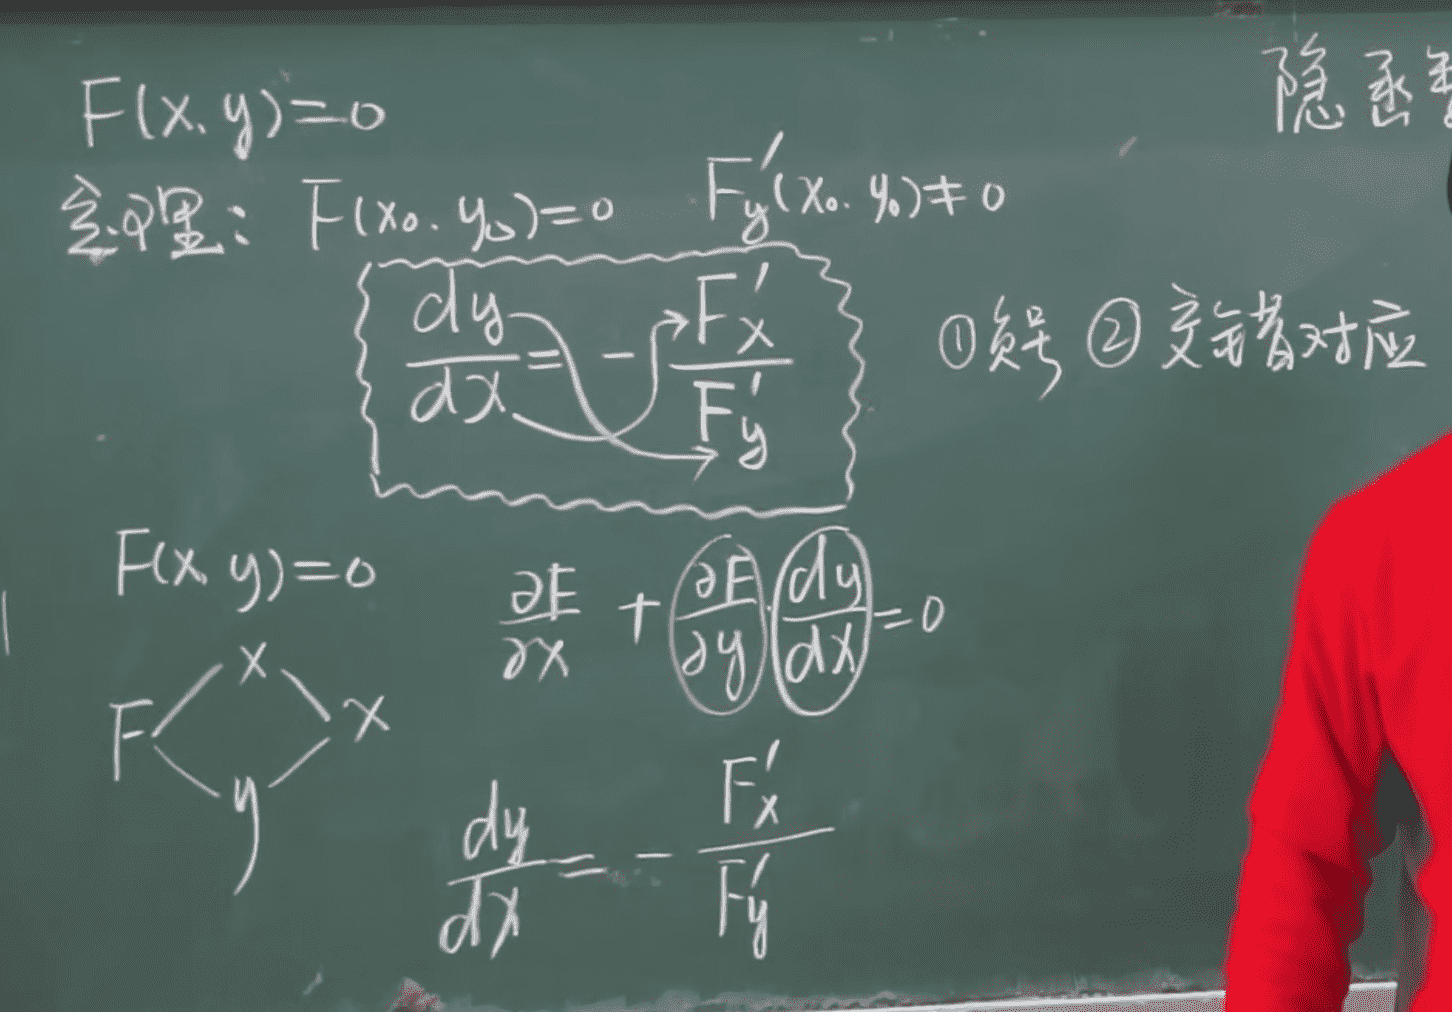 隐函
F(x,y)=0
定理: F(x₀,y₀)=0 F'y(x₀,y₀)≠0
dy/dx = - F'x/F'y ①负号 ②交错对应
F(x,y)=0 ∂F/∂x + ∂F/∂y · dy/dx = 0
x
F x
y
dy/dx = - F'x/F'y